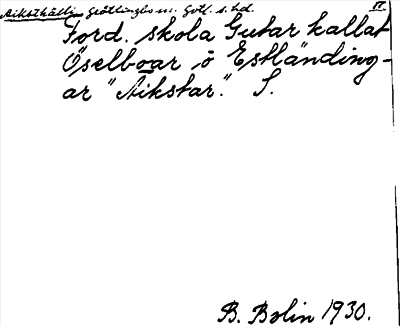 Aikstkälli Grötlingbo sn. Gotl. s. hd. II.
Ford. skola Gutar kallat
Öselboar o Estländing-
ar "Aikstar". S.
B. Bolin 1930.